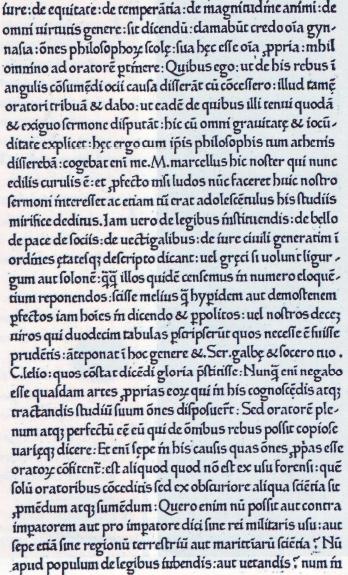 iure: de equitate: de temperãtia: de magnitudine animi: de
omni uirtutis genere: sit dicendũ: clamabũt credo oĩa gyn-
nasia: õnes philosophoꝝ scolę: sua hęc esse oĩa ꝓpria: nihil
omnino ad oratorẽ ptinere: Quibus ego: ut de his rebus ĩ
angulis cõsumẽdi ocii causa disserãt cũ cõcessero: illud tamẽ
oratori tribuã & dabo: ut eadẽ de quibus illi tenui quodã
& exiguo sermone disputãt: hic cũ omni grauitatę & iocũ-
ditate explicet: hęc ergo cum ip̃is philosophis tum athenis
disserebã: cogebat eni me. M. marcellus hic noster qui nunc
edilis curulis ẽ: et ꝓfecto nisi ludos nũc faceret huic nostro
sermoni interesset ac etiam tũ erat adolescẽtulus his studiis
mirifice deditus. Iam uero de legibus instituendis: de bello
de pace de sociis: de uectigalibus: de iure ciuili generatim ĩ
ordines ętatesqꝫ descripto dicant: uel gręci si uolunt ligur-
gum aut solonẽ: q̃q̃ illos quidẽ censemus in numero eloquẽ-
tium reponendos: scisse melius q̃ hypidem aut demostenem
pfectos iam hoies in dicendo & ppolitos: uel nostros decez
uiros qui duodecim tabulas pscripserũt quos necesse ẽ fuisse
prudẽtis: ãteponat ĩ hoc genere &. Ser. galbę & socero tuo.
C. lelio: quos cõstat dicẽdi gloria pstitisse: Nunq̃ eni negabo
esse quasdam artes ꝓprias eoꝝ qui in his cognoscẽdis atqꝫ
tractandis studiũ suum õnes disposuert̃: Sed oratorẽ ple-
num atqꝫ perfectũ cẽ eũ qui de õnibus rebus possit copiose
uarięqꝫ dicere: Et eni sępe in his causis quas õnes ꝓp̃as esse
oratoꝝ cõfitent̃: est aliquod quod nõ est ex usu forensi: quẽ
solũ oratoribus cõceditis sed ex obscuriore aliqua sciẽtia sit
ꝓmẽdum atqꝫ sumẽdum: Quero enim nũ possit aut contra
imp̃atorem aut pro imp̃atore dici sine rei militaris usu: aut
sępe etiã sine regionũ terrestriũ aut maritti͂arũ sciẽtia? Nũ
apud populum de legibus iubendis: aut uetandis? num in